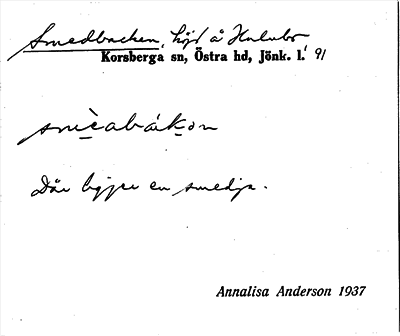 Smedbacken, höjd å Hulubo
Korsberga sn, Östra hd, Jönk. l. 91
smècabákon
Där ligger en smedja.
Annalisa Anderson 1937